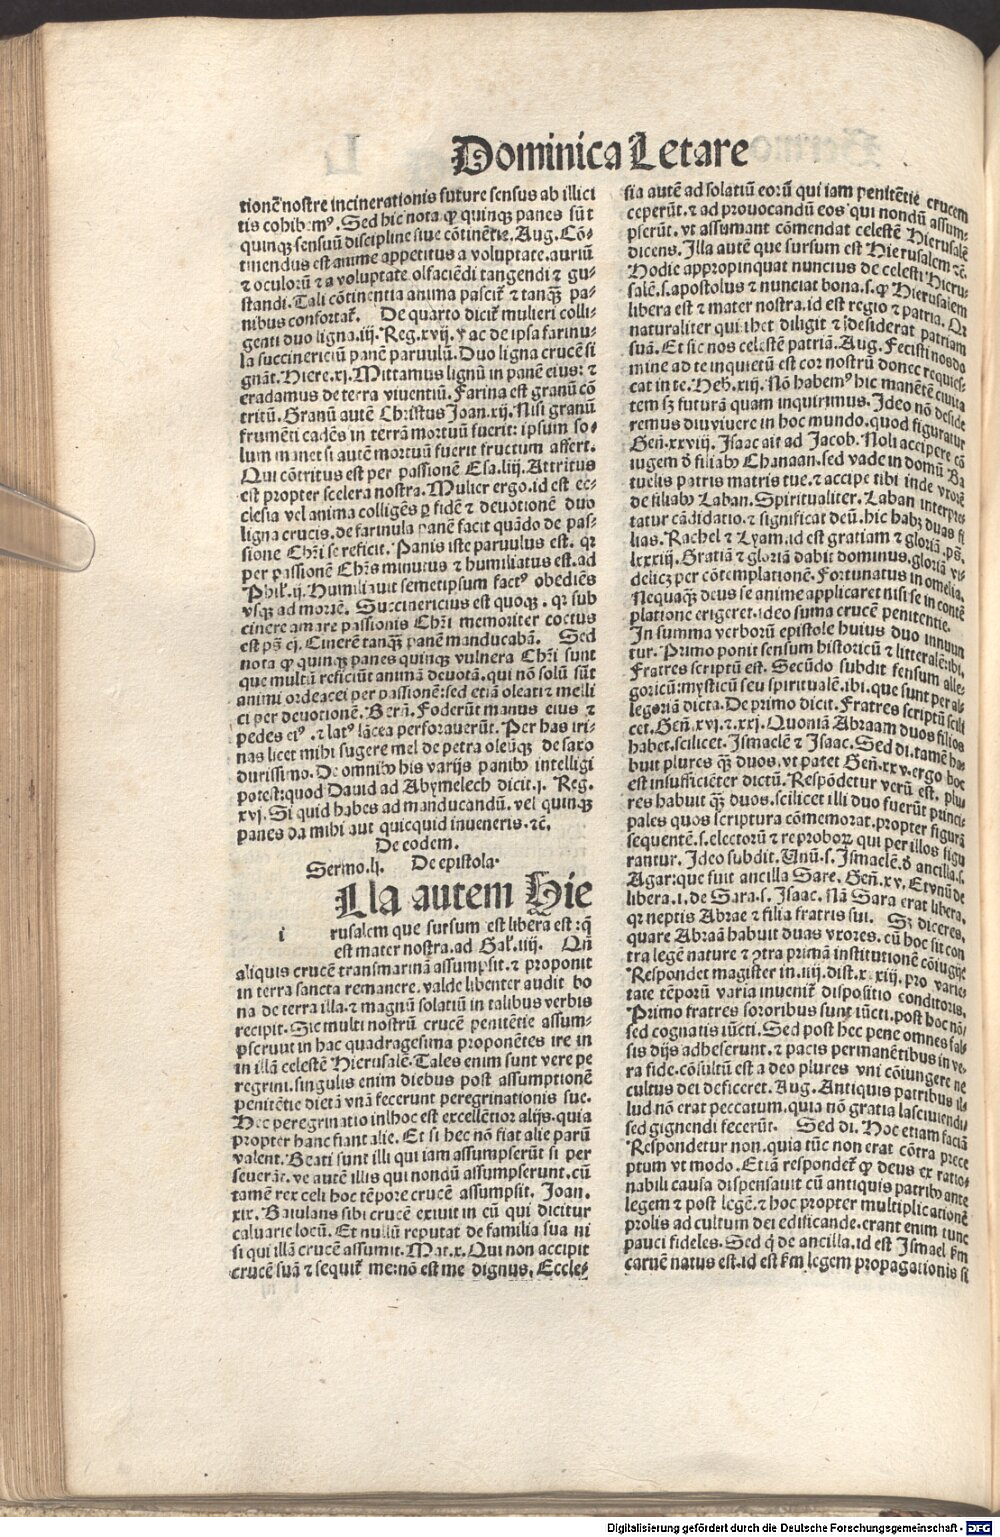 Dominica Letare
tionē nostre incinerationis future sensus ab illici
tis cohibemꝰ. Sed hic nota ꝙ quinqꝫ panes sūt
quinqꝫ sensuū discipline siue cōtinētie. Aug. Cō-
tinendus est anime appetitus a voluptate. auriū
⁊ oculorū ⁊ a voluptate olfaciēdi tangendi ⁊ gu-
standi. Tali cōtinentia anima pascit᷑ ⁊ tanqꝫ̄ pa-
nibus confortat᷑. De quarto dicit᷑ mulieri colli-
genti duo ligna .iij. Reg. xvij. ⁊ ac de ipsa farinu-
la succinericiū panē paruulū. Duo ligna crucē si
gnāt. Hiere. xj. Mittamus lignū in panē eius: ⁊
eradamus de terra viuentiū. Farina est granū cō
tritū. Granū autē Christus Joan. xij. Nisi granū
frumēti cadēs in terrā mortuū fuerit: ipsum so-
lum manet si autē mortuū fuerit fructum affert.
Qui cōtritus est per passionē Esa. liij. Attritus
est propter scelera nostra. Mulier ergo. id est ec-
clesia vel anima colligēs ꝑ fidē ⁊ deuotionē duo
ligna crucis. de farinula panē facit quādo de pas-
sione Chr̄i se reficit. Panis iste paruulus est. qꝛ
per passionē Chr̄us minutus ⁊ humiliatus est. ad
Phil̓. ij. Humiliauit semetipsum factꝰ obediēs
vsqꝫ ad mortē. Succinericius est quoqꝫ. qꝛ sub
cinere amare passionis Chr̄i memoriter coctus
est pꝰ. cj. Cinerē tanqꝫ̄ panē manducabā. Sed
nota ꝙ quinqꝫ panes quinqꝫ vulnera Chr̄i sunt
que multū reficiūt animā deuotā. qui nō solū sūt
animi ordeacei per passionē: sed etiā oleati ⁊ melli
ci per deuotionē. Berñ. Foderūt manus eius ⁊
pedes eiꝰ. ⁊ latꝰ lācea perforauerūt. Per has iri-
nas licet mihi sugere mel de petra oleūqꝫ de saxo
durissimo. De omnibꝰ his varijs panibꝰ intelligi
potest: quod Dauid ad Abymelech dicit. j. Reg.
xvj. Si quid habes ad manducandū. vel quinqꝫ
panes da mihi aut quicquid inueneris. ⁊c̄.
De eodem.
Sermo. lj. De epistola.
i
Lla autem Hie
rusalem que sursum est libera est: q̄
est mater nostra. ad Gal̓. iiij. Qn̄
aliquis crucē transmarinā assumpsit. ⁊ proponit
in terra sancta remanere. valde libenter audit bo
na de terra illa. ⁊ magnū solatiū in talibus verbis
recipit. Sic multi nostrū crucē penitētie assum-
pserunt in hac quadragesima proponētes ire in
in illā celestē Hierusalē. Tales enim sunt vere pe
regrini. singulis enim diebus post assumptionē
penitētie dietā vnā fecerunt peregrinationis sue.
Hec peregrinatio inlhoc est excellētior alijs. quia
propter hanc fiant alie. Et si hec nō fiat alie parū
valent. Beati sunt illi qui iam assumpserūt si per
seuerāt. ve autē illis qui nondū assumpserunt. cū
tamē rex celi hoc tēpore crucē assumpsit. Joan.
xix. Baiulans sibi crucē exiuit in eū qui dicitur
caluarie locū. Et nullū reputat de familia sua ni
si qui illā crucē assumit. Mat. x. Qui non accipit
crucē suā ⁊ sequit᷑ me: nō est me dignus. Eccle-
sia autē ad solatiū eorū qui iam penitētie crucem
ceperūt. ⁊ ad prouocandū eos qui nondū assum-
pserūt. vt assumant cōmendat celestē Hierusalē
dicens. Illa autē que sursum est Hierusalem ⁊c̄.
Hodie appropinquat nuncius de celesti Hieru-
salē. s. apostolus ⁊ nunciat bona. s. ꝙ Hierusalem
libera est ⁊ mater nostra. id est regio ⁊ patria. Qꝛ
naturaliter quilibet diligit ⁊ desiderat patriam
suā. Et sic nos celestē patriā. Aug. Fecisti nos do
mine ad te inquietū est cor nostrū donec requies-
cat in te. Heb̄. xiij. Nō habemꝰ hic manētē ciuita
tem sꝫ futurā quam inquirimus. Ideo nō deside
remus diu viuere in hoc mundo. quod figuratur
Geñ. xxviij. Isaac ait ad Jacob. Noli accipere cō
iugem d̄ filiabꝰ Chanaan. sed vade in domū Ba
tuelis patris matris tue. ⁊ accipe tibi inde vxorē
de filiabꝰ Laban. Spiritualiter. Laban interpre-
tatur cādidatio. ⁊ significat deū. hic habꝫ duas fi
lias. Rachel ⁊ Lyam. id est gratiam ⁊ gloriā. pꝰ.
lxxxiij. Gratiā ⁊ gloriā dabit dominus. gloriā vi-
delicꝫ per cōtemplationē. Fortunatus in omelia.
Nequaqꝫ̄ deus se anime applicaret nisi se in contē
platione erigeret. ideo suma crucē penitentie.
In summa verborū epistole huius duo innuun
tur. Primo ponit sensum historicū ⁊ litteralē. ibi.
Fratres scriptū est. Secūdo subdit sensum alle-
goricū: mysticū seu spiritualē. ibi. que sunt per al-
legoriā dicta. De primo dicit. Fratres scriptū scili
cet. Geñ. xvj. ⁊ xxj. Quoniā Abraam duos filios
habet. scilicet. Ismaelē ⁊ Isaac. Sed di. tamē ha
buit plures qꝫ̄ duos. vt patet Geñ. xxv. ergo hoc
est insufficiēter dictū. Respōdetur verū est. plu
res habuit qꝫ̄ duos. scilicet illi duo fuerūt princi-
pales quos scriptura cōmemorat. propter figurā
sequentē. s. electorū ⁊ reproboꝝ qui per illos figu
rantur. Ideo subdit. Unū. s. Ismaelē. d̄ ancilla. s.
Agar: que fuit ancilla Sare. Geñ. xv. Et vnū de
libera. i. de Sara. s. Isaac. Nā Sara erat libera.
qꝛ neptis Abrae ⁊ filia fratris sui. Sꝫ diceres.
quare Abraā habuit duas vxores. cū hoc sit con
tra legē nature ⁊ ꝯtra primā institutionē cōiugij:
Respondet magister in .iiij. dist. xxxiij. pro varie-
tate tēporū varia inuenit᷑ dispositio conditoris.
Primo fratres sororibus sunt iūcti. post hoc nō
sed cognatis iūcti. Sed post hec pene omnes fal-
sis dijs adheserunt. ⁊ pacis permanētibus in ve-
ra fide. cōsultū est a deo plures vni cōiungere ne
cultus dei deficeret. Aug. Antiquis patribus il-
lud nō erat peccatum. quia nō gratia lasciuiendi
sed gignendi fecerūt. Sed di. Hoc etiam faciā
Respondetur non. quia tūc non erat cōtra prece
ptum vt modo. Etiā respondet᷑ ꝙ deus ex ratio-
nabili causa dispensauit cū antiquis patribꝰ ante
legem ⁊ post legē. ⁊ hoc propter multiplicationē
prolis ad cultum dei edificande. erant enim tunc
pauci fideles. Sed q̇ de ancilla. id est Ismael ẜm
carnē natus est. id est ẜm legem propagationis si
Digitalisierung gefördert durch die Deutsche Forschungsgemeinschaft - DFG